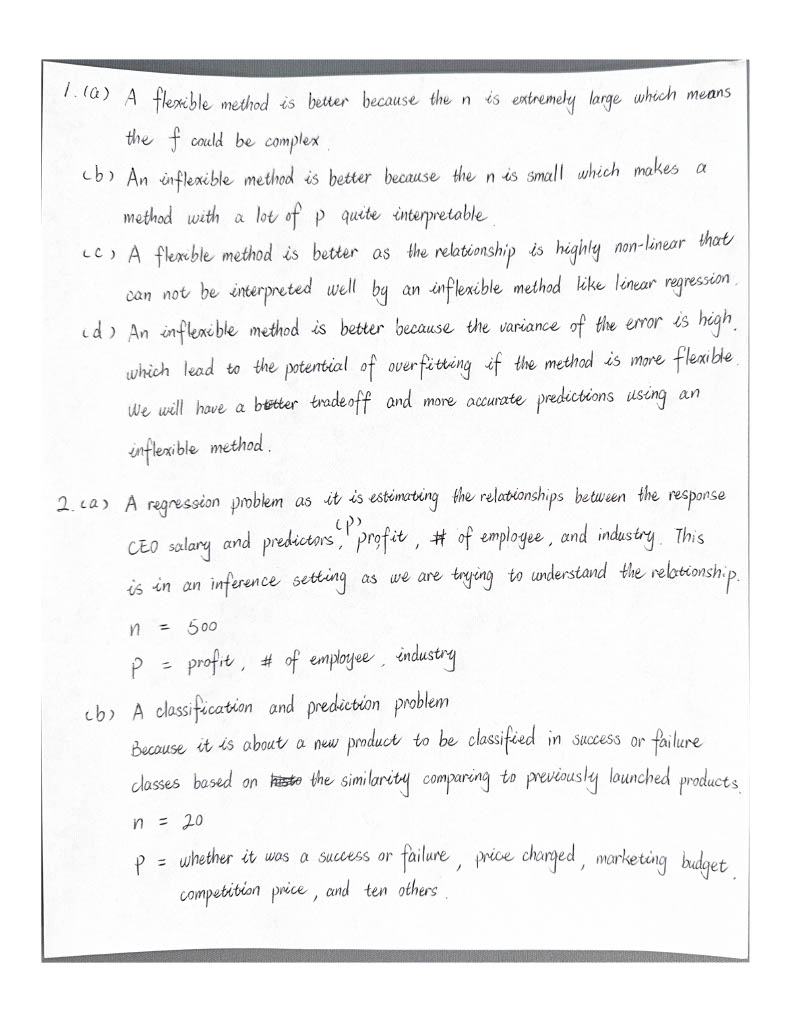 1. (a) A flexible method is better because the n is extremely large which means
the f could be complex.
(b) An inflexible method is better because the n is small which makes a
method with a lot of p quite interpretable.
(c) A flexible method is better as the relationship is highly non-linear that
can not be interpreted well by an inflexible method like linear regression.
(d) An inflexible method is better because the variance of the error is high.
which lead to the potential of overfitting if the method is more flexible.
We will have a better tradeoff and more accurate predictions using an
inflexible method.
2. (a) A regression problem as it is estimating the relationships between the response
CEO salary and predictors, (p) profit, # of employee, and industry. This
is in an inference setting as we are trying to understand the relationship.
n = 500
p = profit, # of employee, industry
(b) A classification and prediction problem
Because it is about a new product to be classified in success or failure
classes based on the similarity comparing to previously launched products.
n = 20
p = whether it was a success or failure, price charged, marketing budget.
competition price, and ten others.